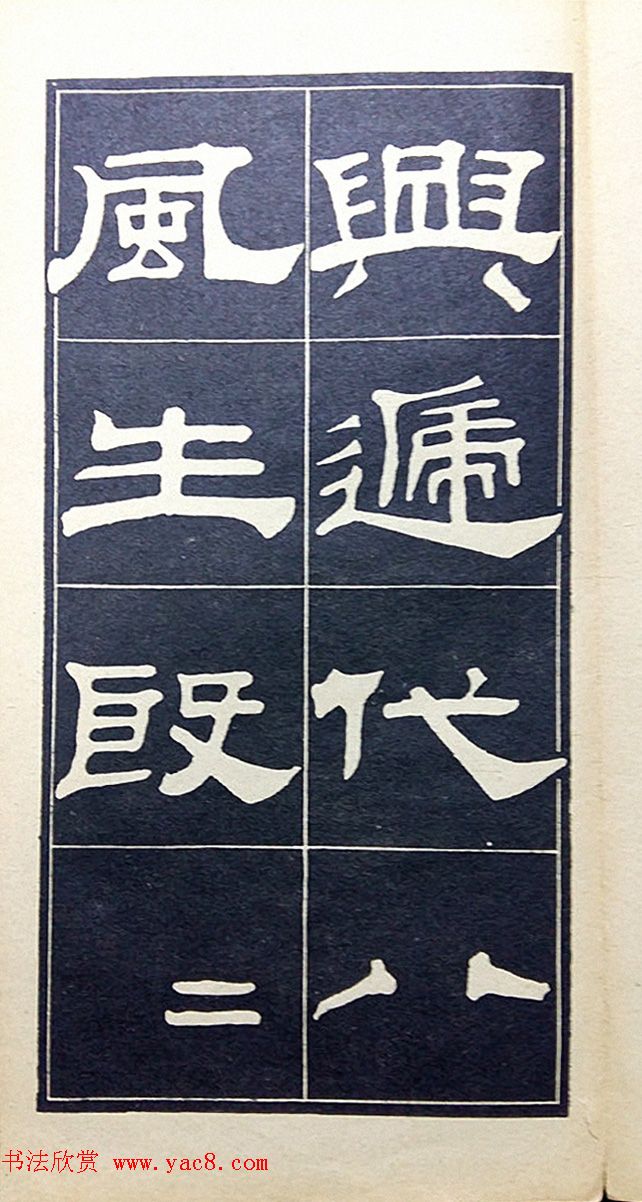 興遞代八
風生段二
书法欣赏 www.yac8.com